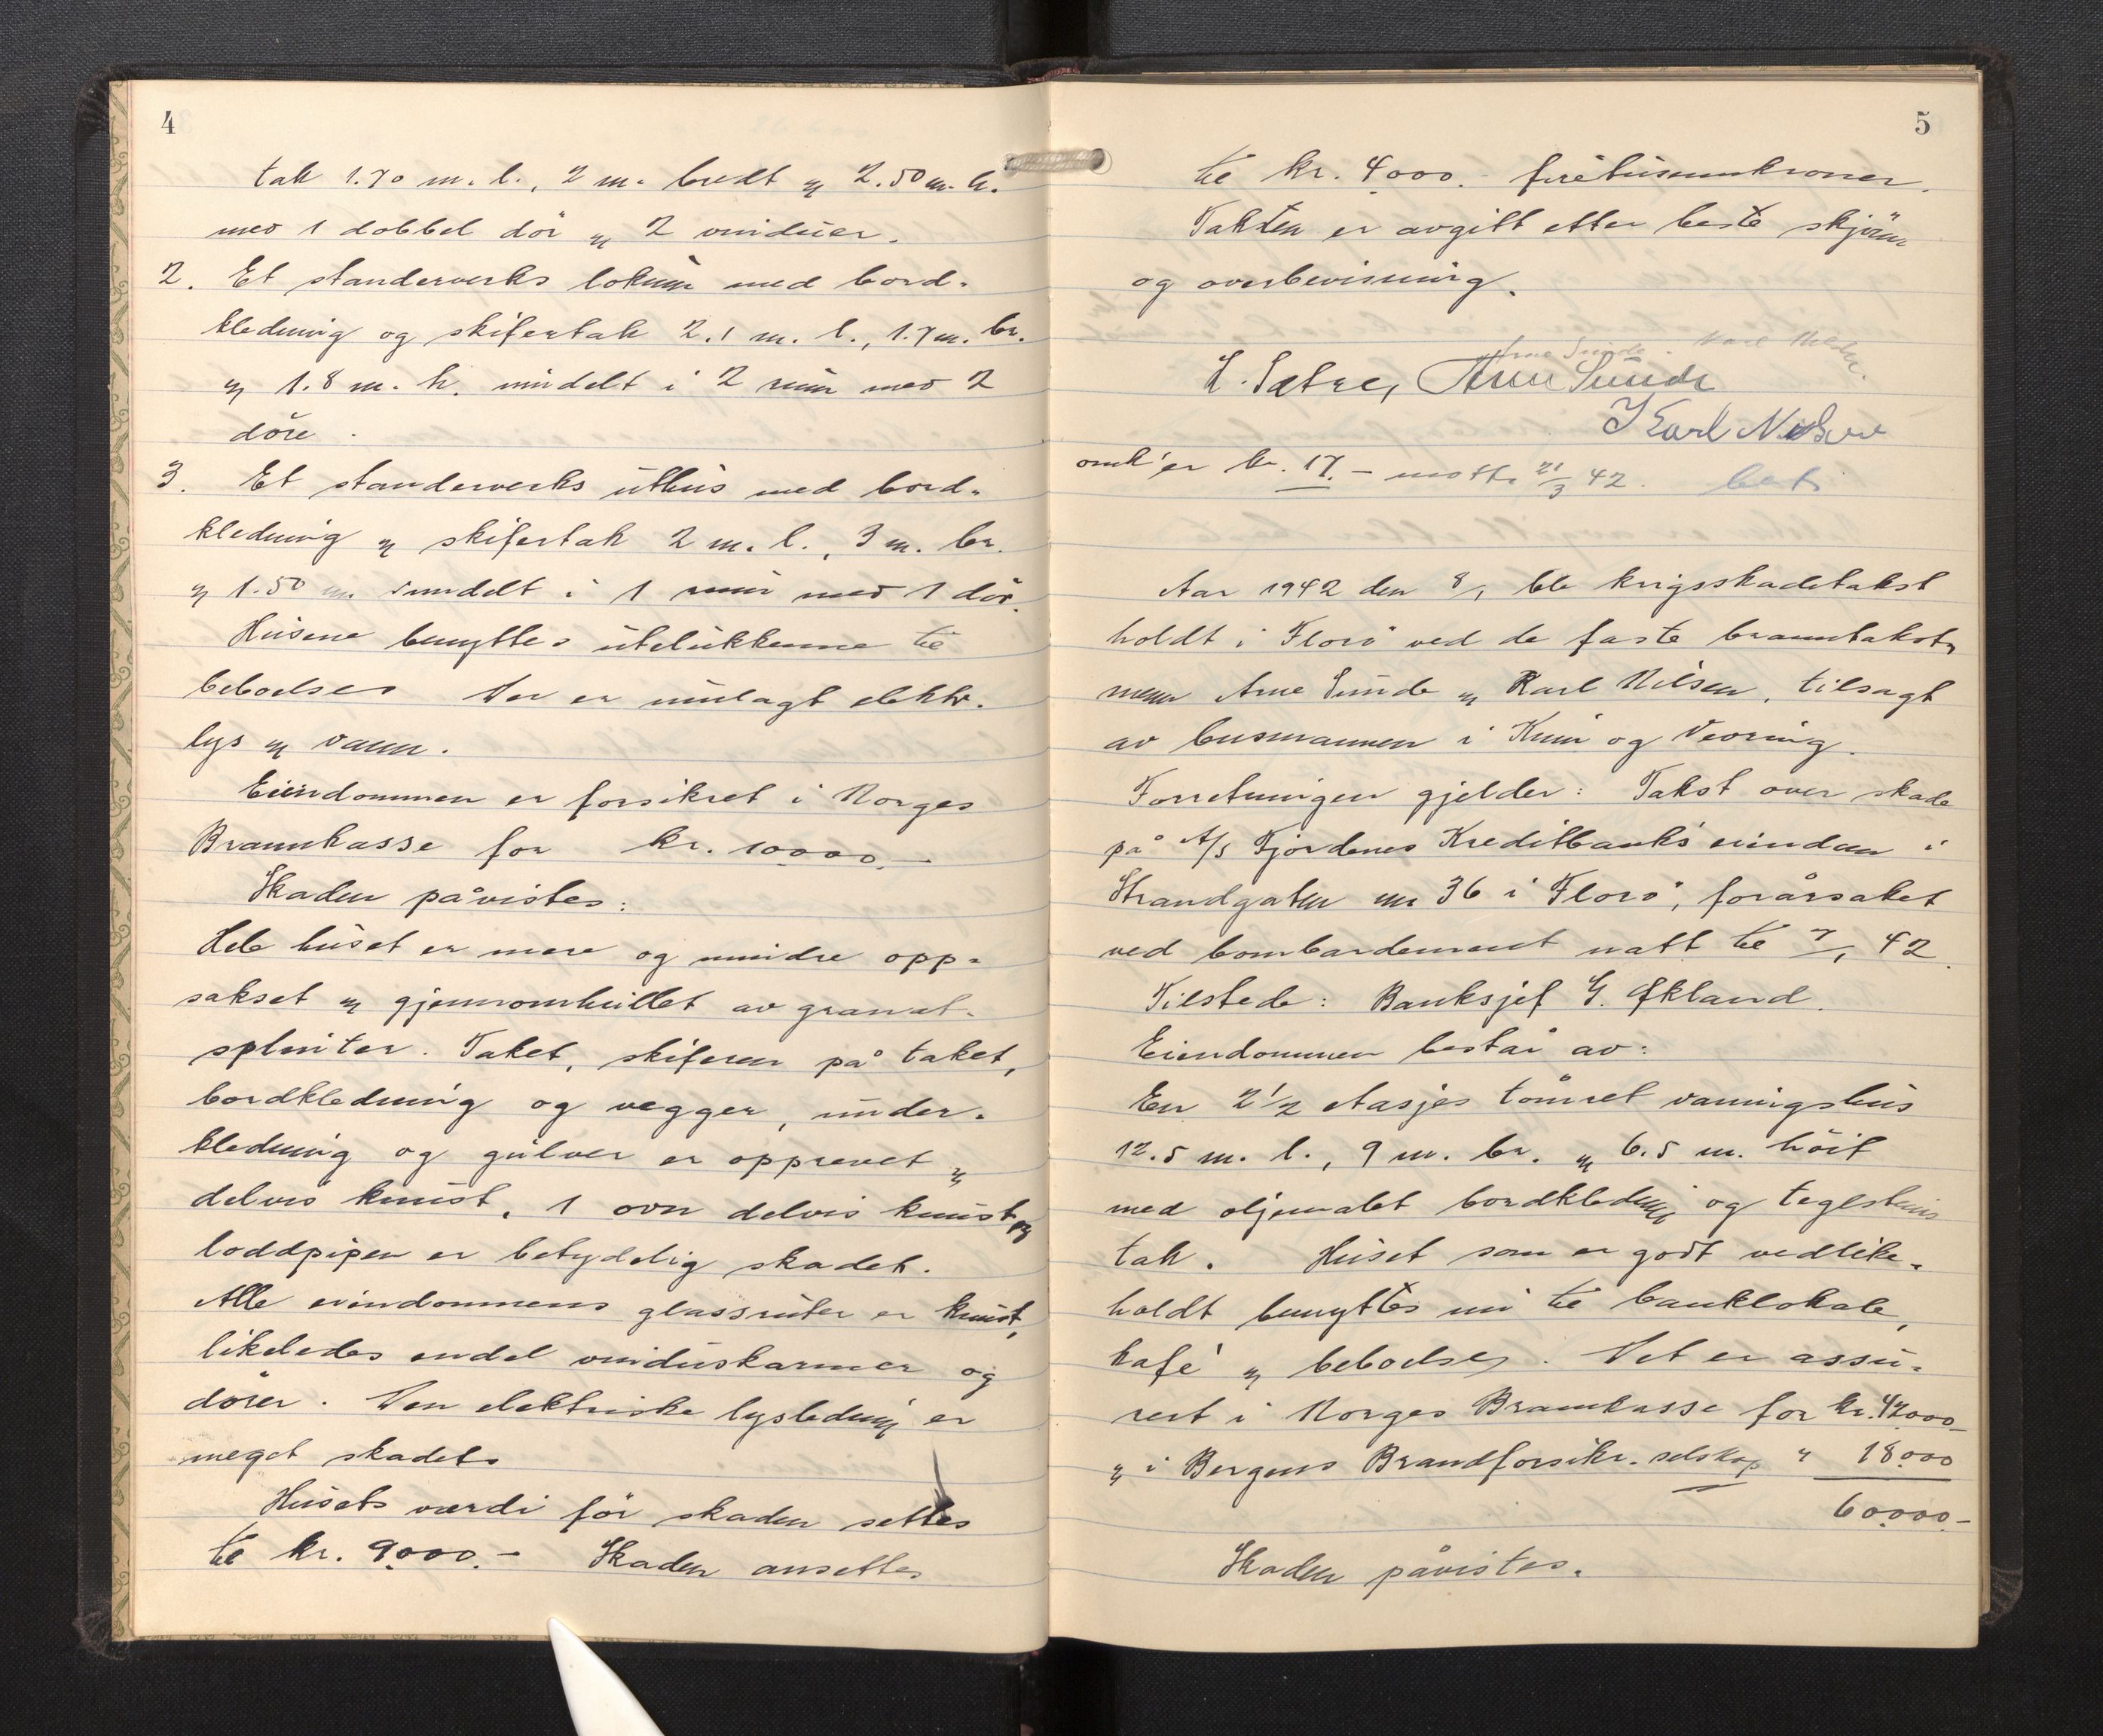 4
tak 1.70 m. l., 2 m. bredt og 2.50 m. h.
med 1 dobbel dör og 2 vinduer.
2. Et standerverks lokum med bord-
kledning og skifertak 2.1 m. l., 1.7 m. br.
og 1.8 m. h. inndelt i 2 rum med 2
döre.
3. Et standerverks uthus med bord-
kledning og skifertak 2 m. l., 3 m. br.
og 1.50 m. inndelt i 1 rum med 1 dör.
Husene benyttes utelukkenne til
beboelses Der er innlagt elektr.
lys og vann.
Eiendommen er forsikret i Norges
Brannkasse for kr. 10000.-
Skaden påvistes:
Hele huset er mere og mindre opp-
sakset og gjennomhullet av granat-
splinter. Taket, skiferen på taket,
bordkledning og vegger, under-
kledning og gulver er opprevet og
delvis knust. 1 ovn delvis knust og
loddpipen er betydelig skadet.
Alle eiendommens glassruter er knust,
likeledes endel vinduskarmer og
dörer. Den elektriske lysledning er
meget skadet.
Husets værdi för skaden settes
til kr. 9000.- Skaden ansettes
5
til kr. 4000.- firetusennkroner.
Taksten er avgitt etter beste skjönn
og overbevisning.
Arne Sunde. Karl Nilsen.
L. Sætre, Arne Sunde
Karl Nilsen
omk'er kr. 17.- mott. 21/3 42. bet.
Aar 1942 den 8/1 ble krigsskadetakst
holdt i Florö ved de faste branntakst-
menn Arne Sunde og Karl Nilsen, tilsagt
av busmannen i Kinn og Vevring.
Forretningen gjelder: Takst over skade
på A/s Fjordenes Kreditbank's eiendom i
Strandgaten nr 36 i Florö, forårsaket
ved bombardement natt til 7/1 42.
Tilstede: Banksjef G. Økland.
Eiendommen består av:
En 2 1/2 etasjes tömret vaningshus
12.5 m. l., 9 m. br. og 6.5 m. höit
med oljemalet bordkledning og teglstens
tak. Huset som er godt vedlike-
holdt benyttes nu til banklokale,
kafé og beboelses. Det er assu-
rert i Norges Brannkasse for kr. 42000-
og i Bergens Brandforsikr. selskap " 18000
60000.-
Skaden påvistes.